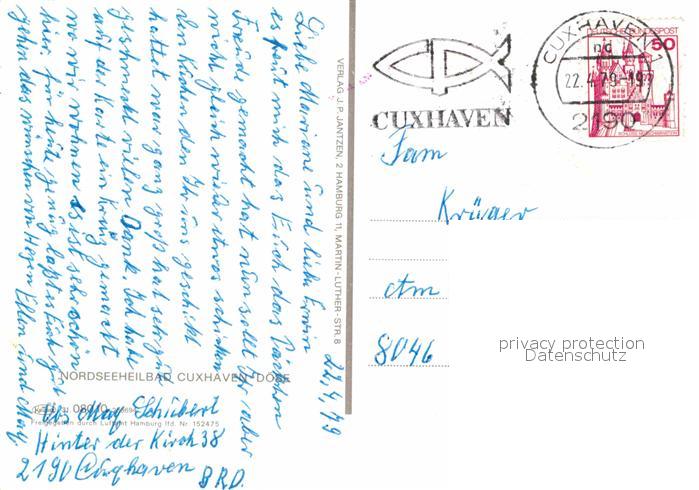 22.4.79
Liebe Mariane und lieber Erwin
es freut mich das Euch das Päckchen
Freude gemacht hat nun sollt Ihr aber
nicht gleich wieder etwas schicken
der Kuchen den Ihr uns geschickt
hattet war ganz groß hat sehr gut
geschmeckt vielen Dank. Ich habe
auf der Karte ein Kreuz gemacht
wo wir wohnen es ist sehr schön
hier für heute genug laßt es Euch gut
gehen das wünschen von Herzen Ellen und May.
NORDSEEHEILBAD CUXHAVEN-DÖSE
Freigegeben durch Luftamt Hamburg lfd. Nr 152475
Abs May Schubert
Hinter der Kirch 38
2190 Cuxhaven
BRD.
VERLAG J. P. JANTZEN, 2 HAMBURG 11, MARTIN-LUTHER-STR. 8
CUXHAVEN
CUXHAVEN
22.4.79-19
2190
DEUTSCHE BUNDESPOST
50
Fam
Krüger
8046
privacy protection
Datenschutz